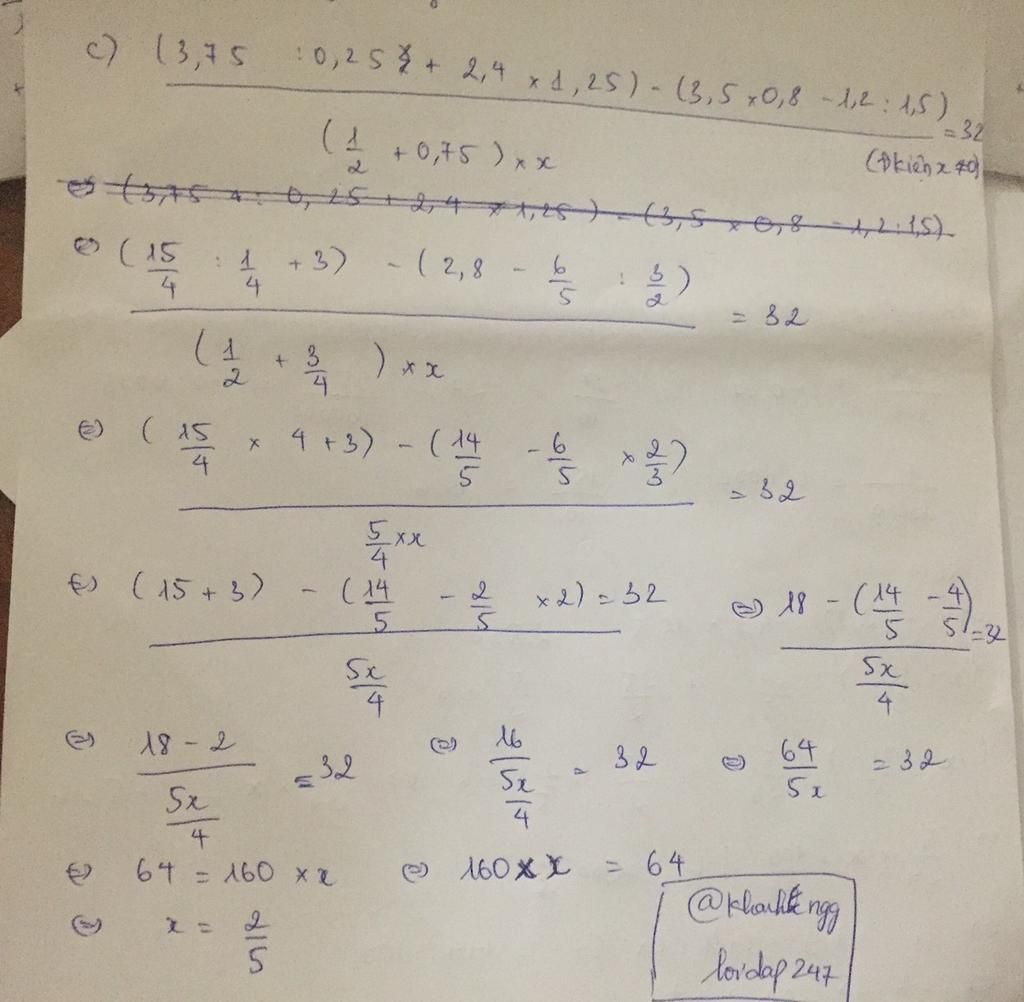 c) (3,75 : 0,25 + 2,4 × 1,25) - (3,5 × 0,8 - 1,2 : 1,5) / (1/2 + 0,75) × x = 32
(Đkiện x ≠ 0)
⇔ (3,75 : 0,25 + 2,4 × 1,25) - (3,5 × 0,8 - 1,2 : 1,5)
⇔ (15/4 : 1/4 + 3) - (2,8 - 6/5 : 3/2) / (1/2 + 3/4) × x = 32
⇔ (15/4 × 4 + 3) - (14/5 - 6/5 × 2/3) / 5/4 × x = 32
⇔ (15 + 3) - (14/5 - 2/5 × 2) / 5x/4 = 32 ⇔ 18 - (14/5 - 4/5) / 5x/4 = 32
⇔ 18 - 2 / 5x/4 = 32 ⇔ 16 / 5x/4 = 32 ⇔ 64/5x = 32
⇔ 64 = 160 × x ⇔ 160 × x = 64
⇔ x = 2/5
loidap247